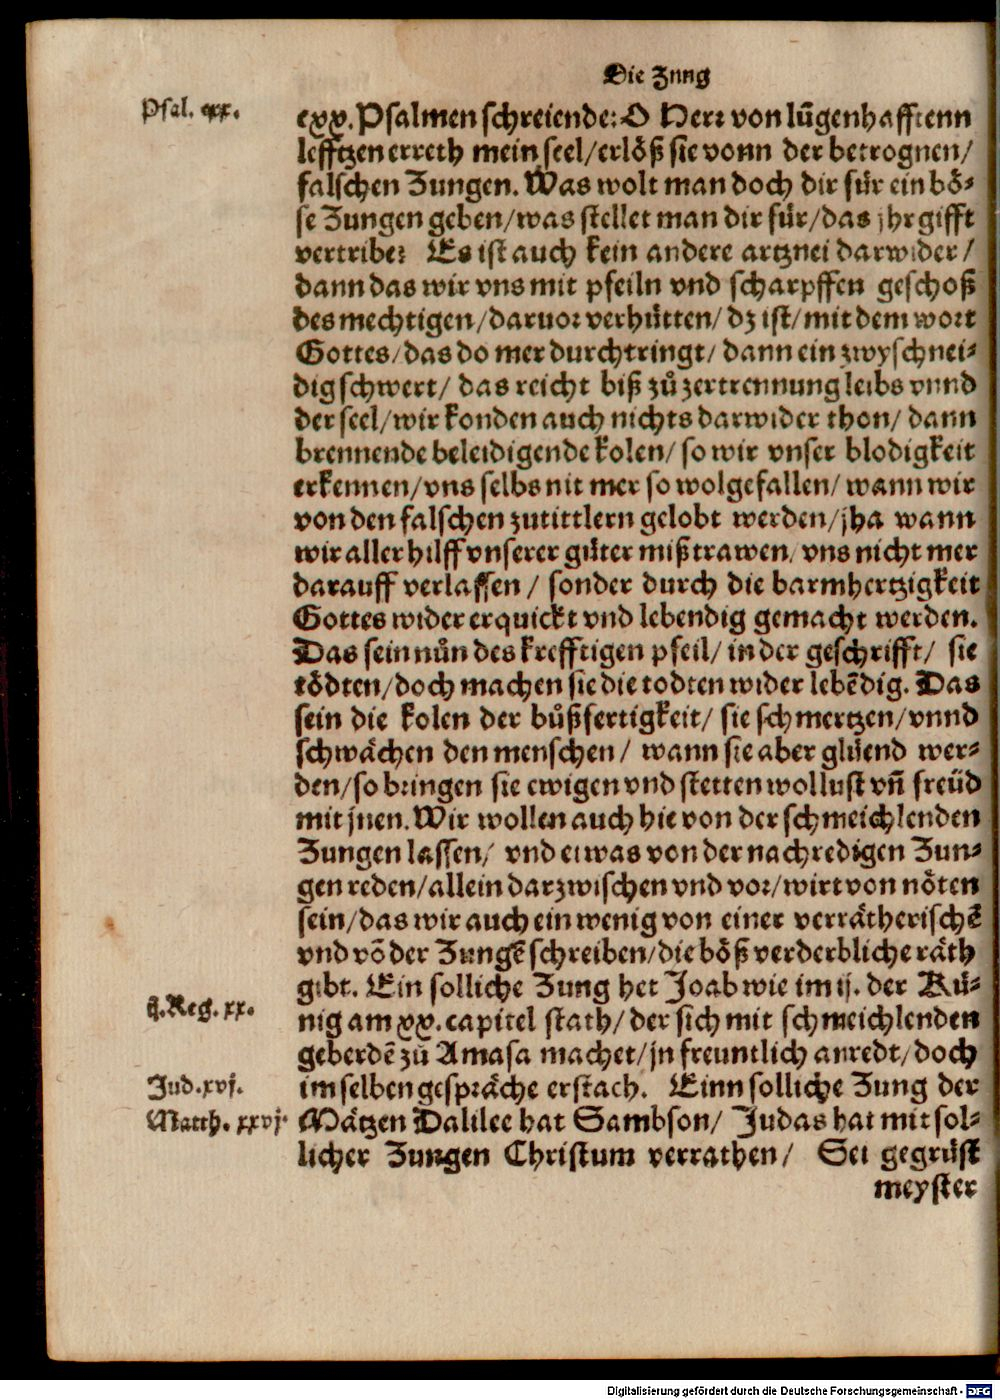 Die Zung
Psal. cxx.
cxx. Psalmen schreiende: O Herr von lůgenhafftenn
lefftzen erreth mein seel/erlöß sie vonn der betrognen/
falschen Zungen. Was wolt man doch dir für ein bö-
se Zungen geben/was stellet man dir für/das jhr gifft
vertribe? Es ist auch kein andere artznei darwider/
dann das wir vns mit pfeiln vnd scharpffen geschoß
des mechtigen/daruor verhütten/ dz ist/ mit dem wort
Gottes/das do mer durchtringt/ dann ein zwyschnei-
dig schwert/ das reicht biß zů zertrennung leibs vnnd
der seel/wir konden auch nichts darwider thon/ dann
brennende beleidigende kolen/ so wir vnser blodigkeit
erkennen/vns selbs nit mer so wolgefallen/ wann wir
von den falschen zutittlern gelobt werden/jha wann
wir aller hilff vnserer güter mißtrawen/ vns nicht mer
darauff verlassen/ sonder durch die barmhertzigkeit
Gottes wider erquickt vnd lebendig gemacht werden.
Das sein nůn des krefftigen pfeil/ in der geschrifft/ sie
tödten/doch machen sie die todten wider lebẽdig. Das
sein die kolen der bůßfertigkeit/ sie schmertzen/vnnd
schwächen den menschen/ wann sie aber glüend wer-
den/so bringen sie ewigen vnd stetten wollust vñ freüd
mit jnen. Wir wollen auch hie von der schmeichlenden
Zungen lassen/ vnd etwas von der nachredigen Zun-
gen reden/allein darzwischen vnd vor/wirt von nöten
sein/das wir auch ein wenig von einer verrätherischẽ
vnd võ der Zungẽ schreiben/die böß verderbliche räth
gibt. Ein solliche Zung het Joab wie im ij. der Kü-
ij. Reg. xx.
nig am xx. capitel stath/der sich mit schmeichlenden
geberdẽ zů Amasa machet/jn freuntlich anredt/doch
Jud. xvj.
im selben gespräche erstach. Einn solliche Zung der
Matth. xxvj.
Mätzen Dalilee hat Sambson/ Judas hat mit sol-
licher Zungen Christum verrathen/ Sei gegrüst
meyster
Digitalisierung gefördert durch die Deutsche Forschungsgemeinschaft - DFG